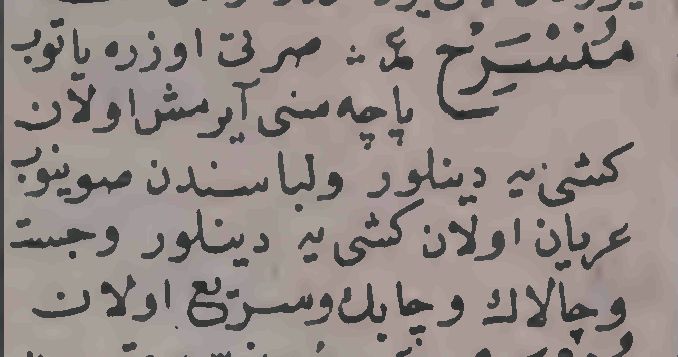 منسرح ع ؞ صرتى اوزره ياتوب
پاچه سنى آيرمش اولان
كشى يه دينلور ولباسندن صوينوب
عريان اولان كشى يه دينلور وجست
وچالاك وچابك وسريع اولان